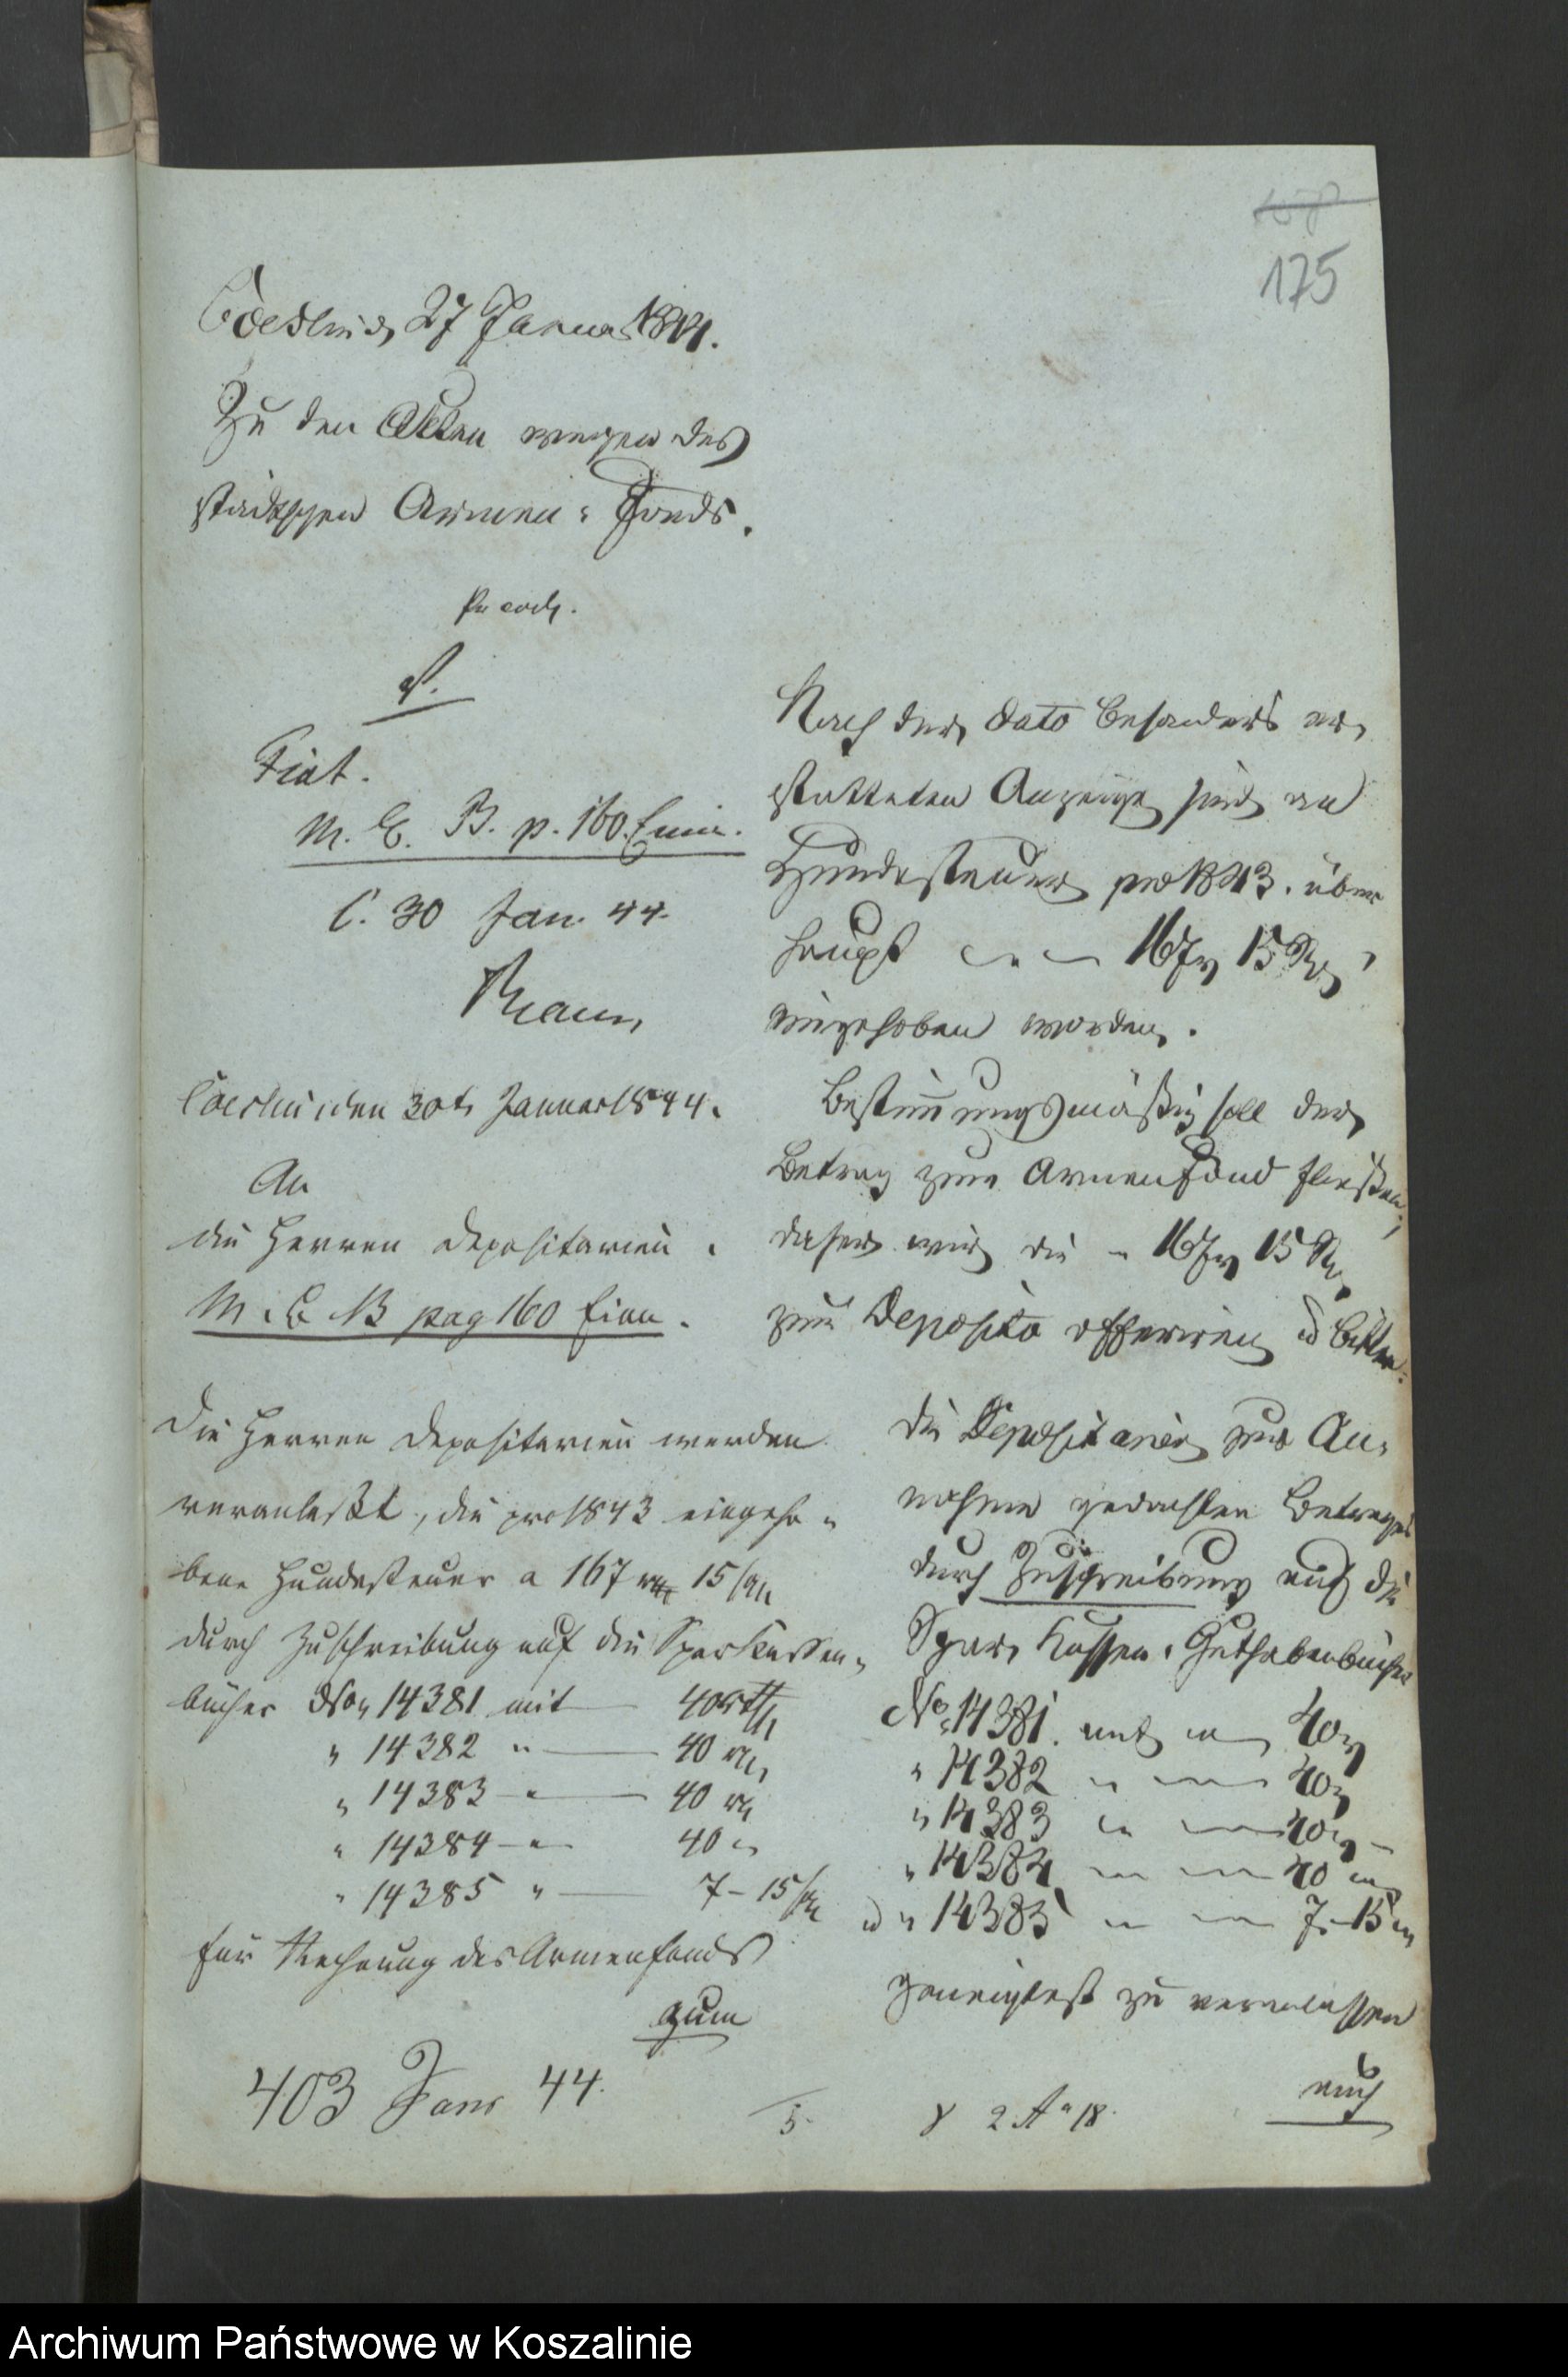 175
Coeslin d 27 Januar 1844.
Zu den Akten wegen des
städtschen Armen-Fonds.
Fiat.
M. C. B. p. 160. Einn.
C. 30 Jan. 44.
Braun
Coeslin den 30t Januar 1844.
An
die Herren Depositarien.
M. C. B pag 160 Einn.
Die Herren Depositarien werden
veranlaßt, die pro 1843 eingeho-
bene Hundesteuer a 167 rtl 15 sgr
durch Zuschreibung auf die Sparkassen-
bücher No 14381 mit — 40 rtl
" 14382 " — 40 rtl
" 14383 — " — 40 rtl
" 14384 — " — 40 "
" 14385 " — 7 — 15 sgr
für Rechnung des Armenfonds
zum
403 Janr 44.
Nach der dato besonders er-
statteten Anzeige sind an
Hundesteuer pro 1843. über-
haupt 167 rt 15 Sgr
eingehoben worden.
Bestimmungsmäßig soll der
Betrag zum Armenfond fließen,
daher wir die - 167 rt 15 Sgr
zum Deposito offeriren u bitten:
die Depositarien zur An-
nahme gedachten Betrages
durch Zuschreibung auf die
Spar-Kassen-Guthabenbücher
No 14381. mit 40 rt
" 14382 " 40 rt
" 14383 " 40 rt
" 14384 " 40 "
u " 14385 " 7 - 15 "
geneigtest zu veranlassen
auch